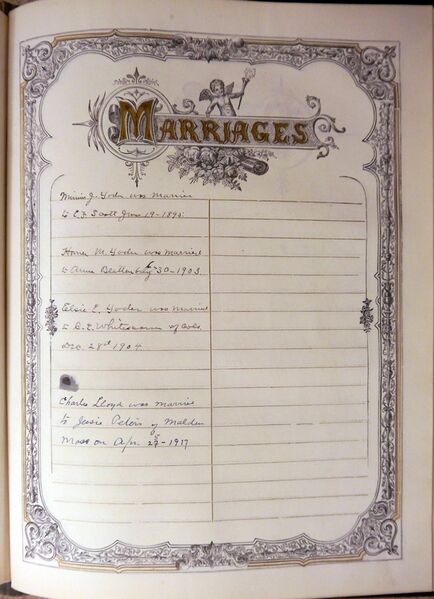 MARRIAGES
Minnie J. Yoder was Married
to E. F. Scott June 19-1895.
Homer M. Yoder was married
to Anna 30-1903.
Elsie E. Yoder was married
to D. E. of Colo.
Dec. 28th 1904.
Charles Lloyd was married
to Jessie Peters of Malden
Mass on Apr. 1917